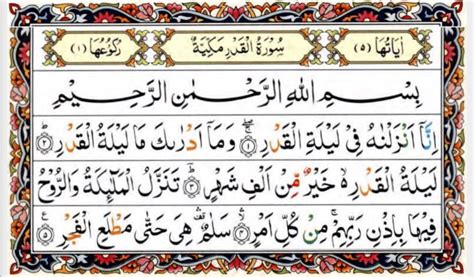 اٰيَاتُهَا (٥) سُوْرَةُ الْقَدْرِ مَكِّيَّةٌ رُكُوْعُهَا (١)
بِسْمِ اللّٰهِ الرَّحْمٰنِ الرَّحِيْمِ
اِنَّاۤ اَنْزَلْنٰهُ فِيْ لَيْلَةِ الْقَدْرِ ۚۖ ﴿١﴾ وَمَاۤ اَدْرٰىكَ مَا لَيْلَةُ الْقَدْرِ ؕ ﴿٢﴾
لَيْلَةُ الْقَدْرِ ۙ۬ خَيْرٌ مِّنْ اَلْفِ شَهْرٍ ؕ ﴿٣﴾ تَنَزَّلُ الْمَلٰٓئِكَةُ وَالرُّوْحُ
فِيْهَا بِاِذْنِ رَبِّهِمْ ۚ مِنْ كُلِّ اَمْرٍ ۙۛ ﴿٤﴾ سَلٰمٌ ۛ۟ هِيَ حَتّٰى مَطْلَعِ الْفَجْرِ ﴿٥﴾